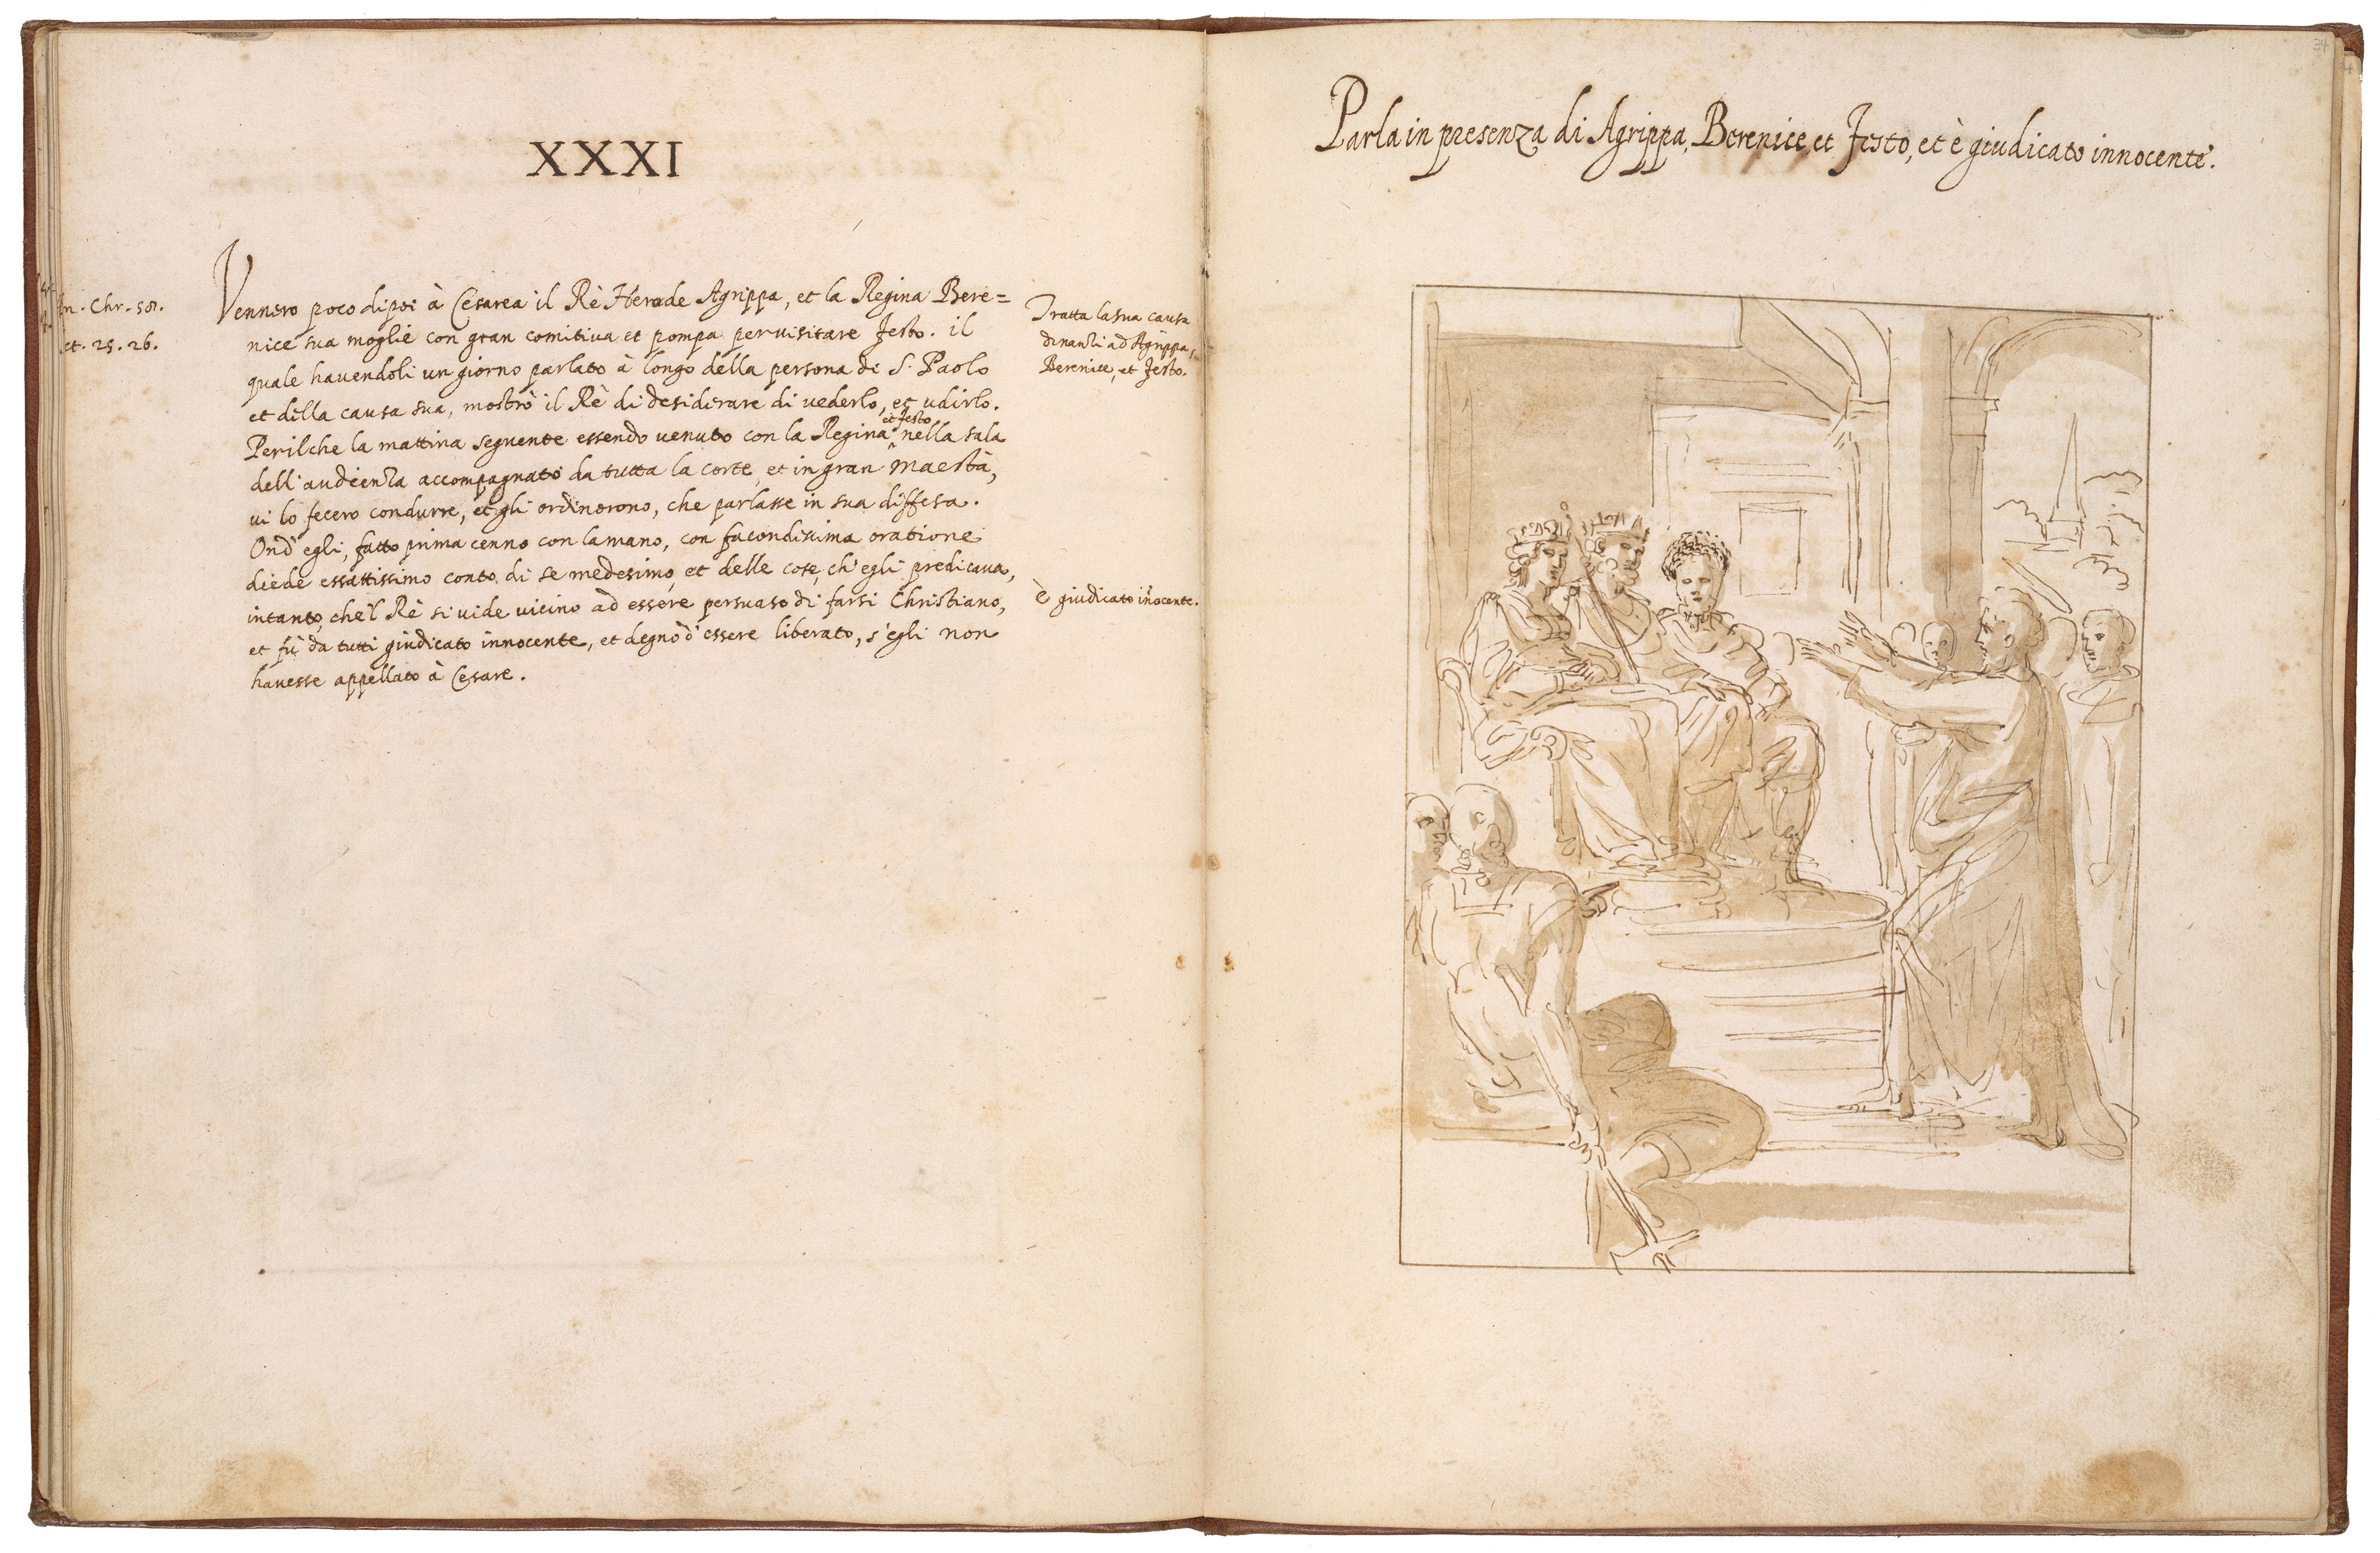 XXXI
An. Chr. 58.
Act. 25. 26.
Vennero poco dipoi à Cesarea il Rè Herode Agrippa, et la Regina Bere=
nice sua moglie con gran comitiva et pompa per visitare Festo. il
quale havendoli un giorno parlato à longo della persona di S. Paolo
et della causa sua, mostrò il Rè di desiderare di vederlo, et udirlo.
Perilche la mattina seguente essendo venuto con la Regina et Festo nella sala
dell'audienza accompagnato da tutta la corte, et in gran maestà,
vi lo fecero condurre, et gli ordinorono, che parlasse in sua diffesa.
Ond'egli, fatto prima cenno con la mano, con facondissima oratione
diede essattissimo conto di se medesimo, et delle cose, ch'egli predicava,
intanto, che'l Rè si vide vicino ad essere persuaso di farsi Christiano,
et fù da tutti giudicato innocente, et degno d'essere liberato, s'egli non
havesse appellato à Cesare.
Tratta la sua causa
dinanzi ad Agrippa,
Berenice, et Festo.
è giudicato innocente.
34
Parla in presenza di Agrippa, Berenice, et Festo, et è giudicato innocente.